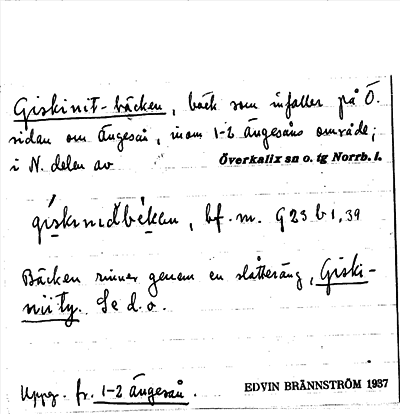 Giskinit-bäcken, bäck som infaller på Ö.
sidan om Ängesån, inom 1-2 Ängesåns område;
i N. delen av Överkalix sn o. tg Norrb. l.
bf. m. G 23 b 1, 39
Bäcken rinner genom en slåtteräng, Giski-
niity. Se d. o.
Uppg. fr. 1-2 Ängesån.
EDVIN BRÄNNSTRÖM 1937